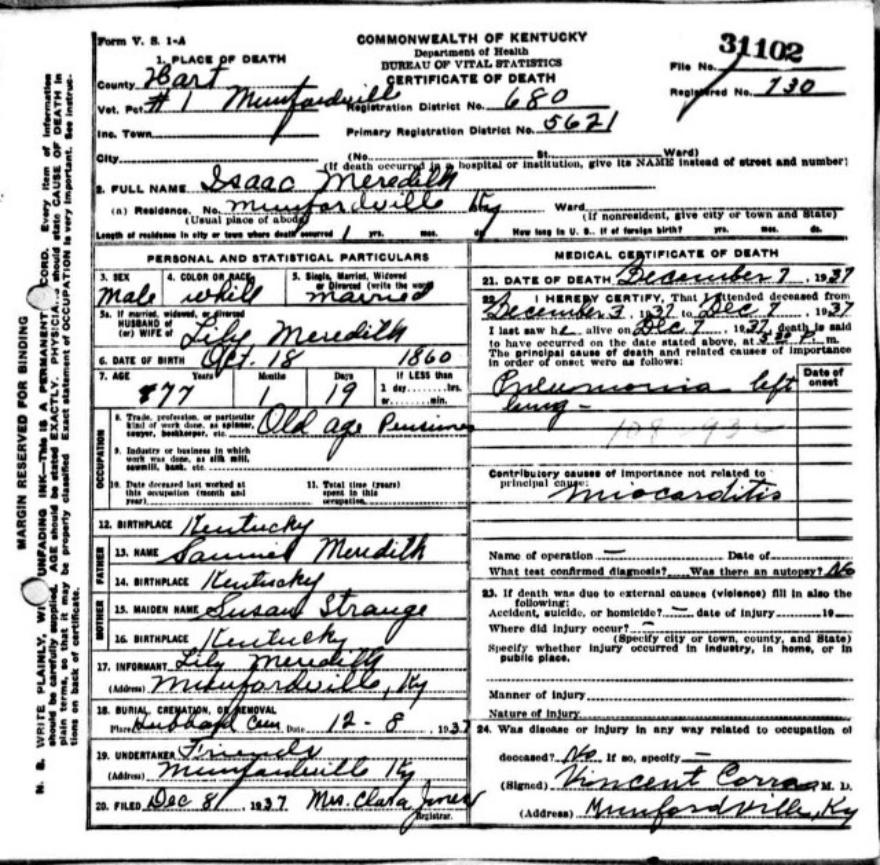 Form V. S. 1-A
COMMONWEALTH OF KENTUCKY
Department of Health
BUREAU OF VITAL STATISTICS
CERTIFICATE OF DEATH
31102
File No.
Registered No. 730
1. PLACE OF DEATH
County Hart
Vot. Pct. #1 Munfordville
Registration District No. 680
Inc. Town
Primary Registration District No. 5621
City (No. St. Ward)
(If death occurred in a hospital or institution, give its NAME instead of street and number)
2. FULL NAME Isaac Meredith
(a) Residence. No. Munfordville Ky Ward
(Usual place of abode) (If nonresident, give city or town and State)
Length of residence in city or town where death occurred 1 yrs. mos. ds. How long in U. S., if of foreign birth? yrs. mos. ds.
PERSONAL AND STATISTICAL PARTICULARS
3. SEX 4. COLOR OR RACE 5. Single, Married, Widowed
or Divorced (write the word)
Male whill married
5a. If married, widowed, or divorced
HUSBAND of
(or) WIFE of Lily Meredith
6. DATE OF BIRTH Oct. 18 1860
7. AGE Years Months Days If LESS than
77 1 19 1 day hrs.
or min.
OCCUPATION
8. Trade, profession, or particular
kind of work done, as spinner,
sawyer, bookkeeper, etc. Old age Pensioner
9. Industry or business in which
work was done, as silk mill,
sawmill, bank, etc.
10. Date deceased last worked at
this occupation (month and
year)
11. Total time (years)
spent in this
occupation
12. BIRTHPLACE Kentucky
FATHER
13. NAME Samuel Meredith
14. BIRTHPLACE Kentucky
MOTHER
15. MAIDEN NAME Susan Strange
16. BIRTHPLACE Kentucky
17. INFORMANT Lily Meredith
(Address) Munfordville, Ky
18. BURIAL, CREMATION, OR REMOVAL
Place Hubbard Cem Date 12-8, 1937
19. UNDERTAKER Friends
(Address) Munfordville Ky
20. FILED Dec 8, 1937 Mrs. Clara Jones
Registrar.
MEDICAL CERTIFICATE OF DEATH
21. DATE OF DEATH December 7, 1937
22. I HEREBY CERTIFY, That I attended deceased from
December 3, 1937 to Dec 7, 1937
I last saw he alive on Dec 7, 1937, death is said
to have occurred on the date stated above, at P. m.
The principal cause of death and related causes of importance
in order of onset were as follows:
Date of
onset
Pneumonia left
lung -
Contributory causes of importance not related to
principal cause:
Miocarditis
Name of operation — Date of
What test confirmed diagnosis? Was there an autopsy? No
23. If death was due to external causes (violence) fill in also the
following:
Accident, suicide, or homicide? — date of injury 19
Where did injury occur? —
(Specify city or town, county, and State)
Specify whether injury occurred in industry, in home, or in
public place.
Manner of injury
Nature of injury
24. Was disease or injury in any way related to occupation of
deceased? No If so, specify —
(Signed) Vincent M. D.
(Address) Munfordville, Ky
MARGIN RESERVED FOR BINDING
N. B. WRITE PLAINLY, UNFADING INK—THIS IS A PERMANENT Every item of information
should be carefully supplied. AGE should be stated EXACTLY. should state CAUSE OF DEATH in
plain terms, so that it may be properly classified. Exact statement of OCCUPATION is very important. See instruc-
tions on back of certificate.